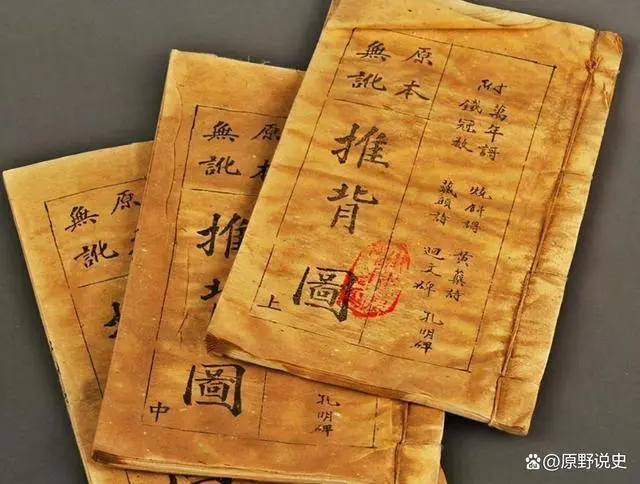 原本
無訛
推背圖
上
附
萬年謌
鐵冠數
燒餅謌
藏頭詩
黃蘗詩
迴文碑
孔明碑
原本
無訛
推背圖
中
孔明碑
原本
無訛
原野说史